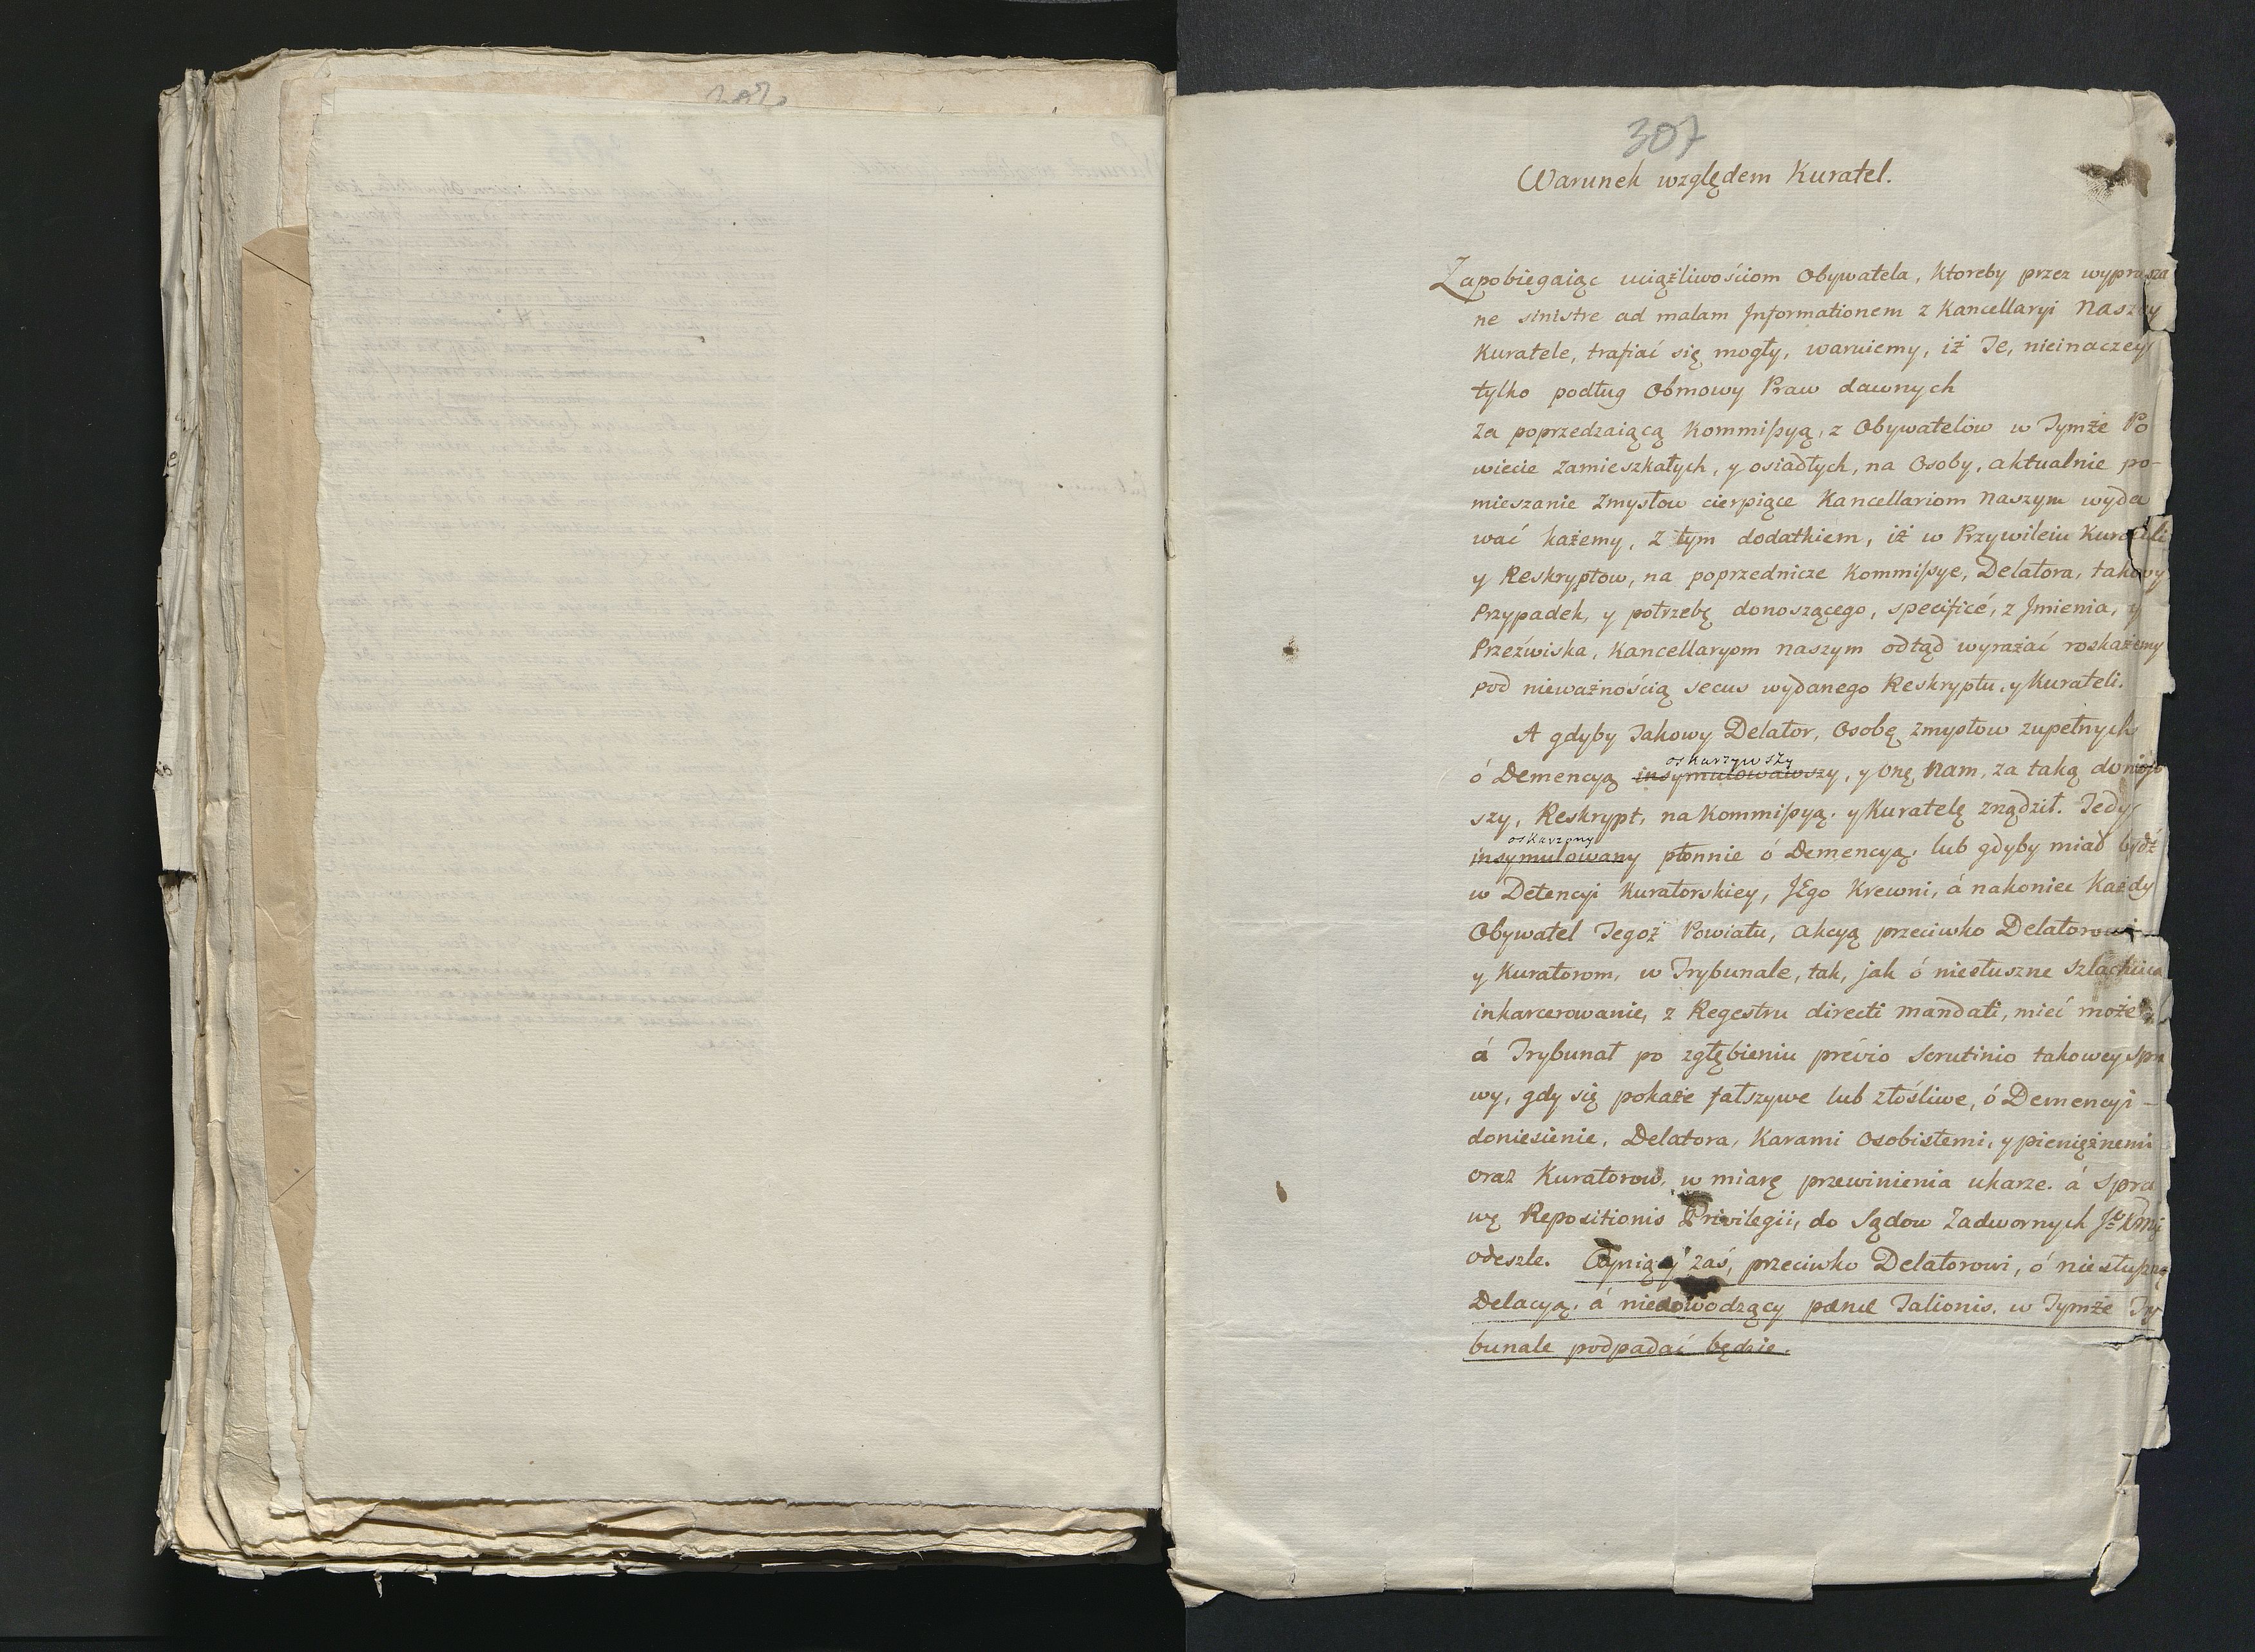 307
Warunek względem Kuratel.
Zapobiegaiąc uciążliwościom Obywatela, ktoreby przez wyprasza
ne sinistre ad malam Informationem z Kancellaryi Naszey
Kuratele, trafiać się mogły, waruiemy, iż Je, nieinaczey
tylko podług Obmowy Praw dawnych
Za poprzedzaiącą Kommißyą, z Obywatelow w Tymże Po
wiecie Zamieszkałych, y osiadłych, na Osoby, aktualnie po-
mieszanie Zmysłow cierpiące Kancellariom Naszym wyda
wać każemy, z tym dodatkiem, iż w Przywileiu Kurateli
y Reskryptow, na poprzednicze Kommißye, Delatora, takowy
Przypadek, y potrzebę donoszącego, specificé, z Jmienia, y
Przeźwiska, Kancellaryom naszym odtąd wyrażać roskażemy
pod nieważnością secus wydanego Reskryptu, y Kurateli.
A gdyby Takowy Delator, Osobę zmysłow zupełnych
oskarzywszy
ó Demencyą insymulowawszy, y onę, Nam, za taką doniosł
szy, Reskrypt, na Kommißyą, y Kuratelę znądził. Tedy
oskarzony
insymulowany płonnie ó Demencyą, lub gdyby miał bydź
w Detencyi Kuratorskiey, JEgo Krewni, á nakoniec Każdy
Obywatel Tegoż Powiatu, Akcyą przeciwko Delatorowi
y Kuratorom, w Trybunale, tak, jak ó niesłuszne Szlachcica
inkarcerowanie, z Regestru directi mandati, mieć może
á Trybunał po zgłębieniu prévio Scrutinio takowey Spra
wy, gdy się pokaże fałszywe lub złośliwe, ó Demencyi -
doniesienie, Delatora, Karami Osobistemi, y pieniężnemi
oraz Kuratorow, w miarę przewinienia ukarze. á Spra
wę Repositionis Privilegii, do Sądow Zadwornych
odeszle. zaś, przeciwko Delatorowi, ó niesłuszną
Delacyą, á niedowodzący pœnœ Talionis, w Tymże Try
bunale podpadać będzie.